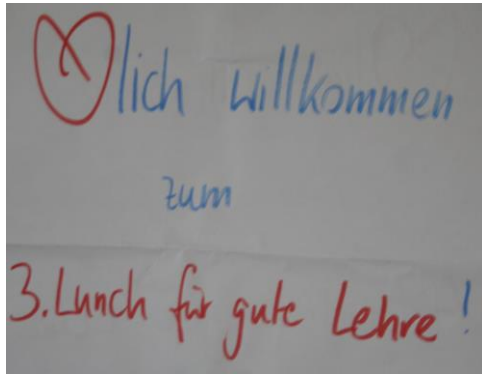 ♥lich willkommen
zum
3. Lunch für gute Lehre!